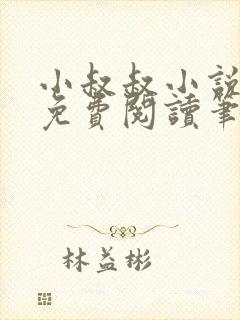 小叔叔小說
免費閱讀筆
林益彬